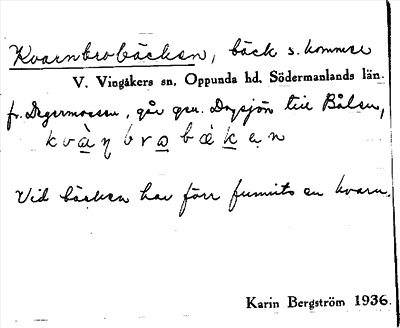 Kvarnbrobäcken, bäck s. kommer
V. Vingåkers sn, Oppunda hd. Södermanlands län.
fr. Degermossen, går gm. Dagsjön till Bålsen,
kvàṇbrobèkẹn
Vid bäcken har förr funnits en kvarn.
Karin Bergström 1936.